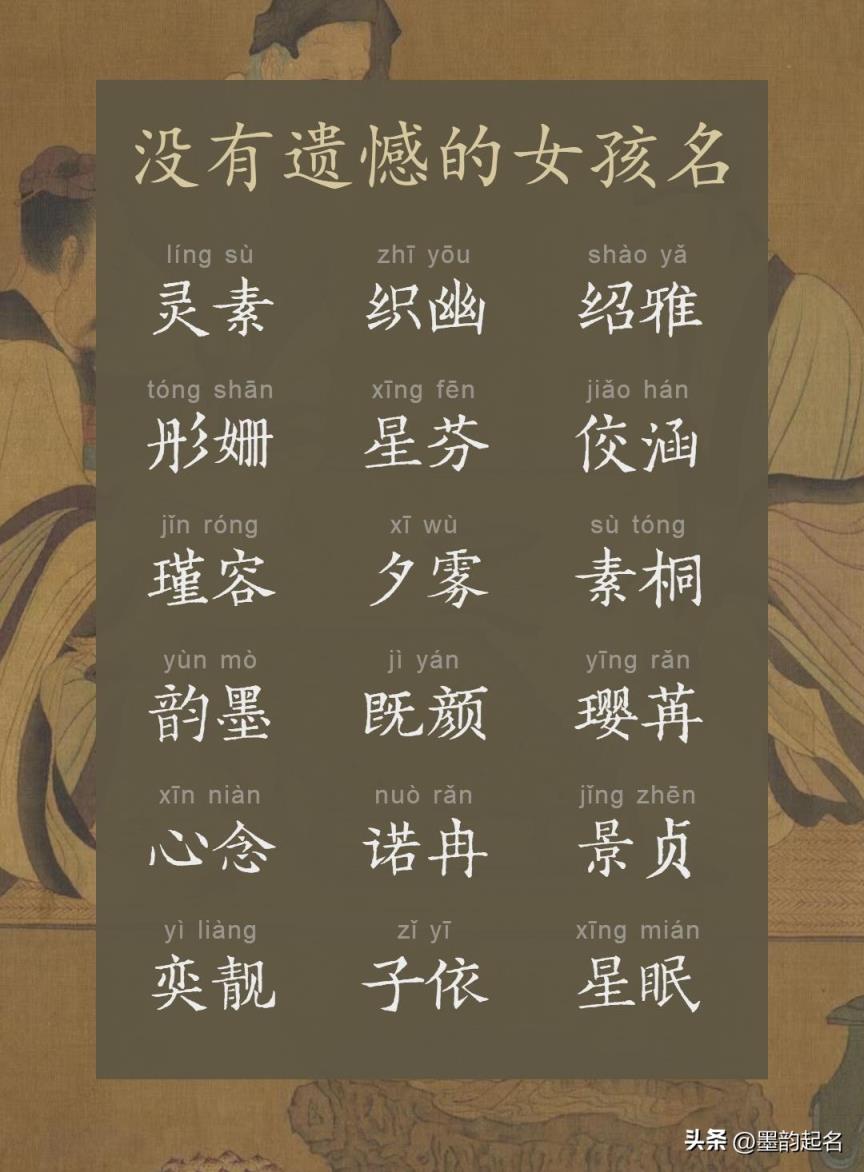 没有遗憾的女孩名
líng sù zhī yōu shào yǎ
灵素 织幽 绍雅
tóng shān xīng fēn jiǎo hán
彤姗 星芬 佼涵
jǐn róng xī wù sù tóng
瑾容 夕雾 素桐
yùn mò jì yán yīng rǎn
韵墨 既颜 璎苒
xīn niàn nuò rǎn jǐng zhēn
心念 诺冉 景贞
yì liàng zǐ yī xīng mián
奕靓 子依 星眠
头条 @墨韵起名